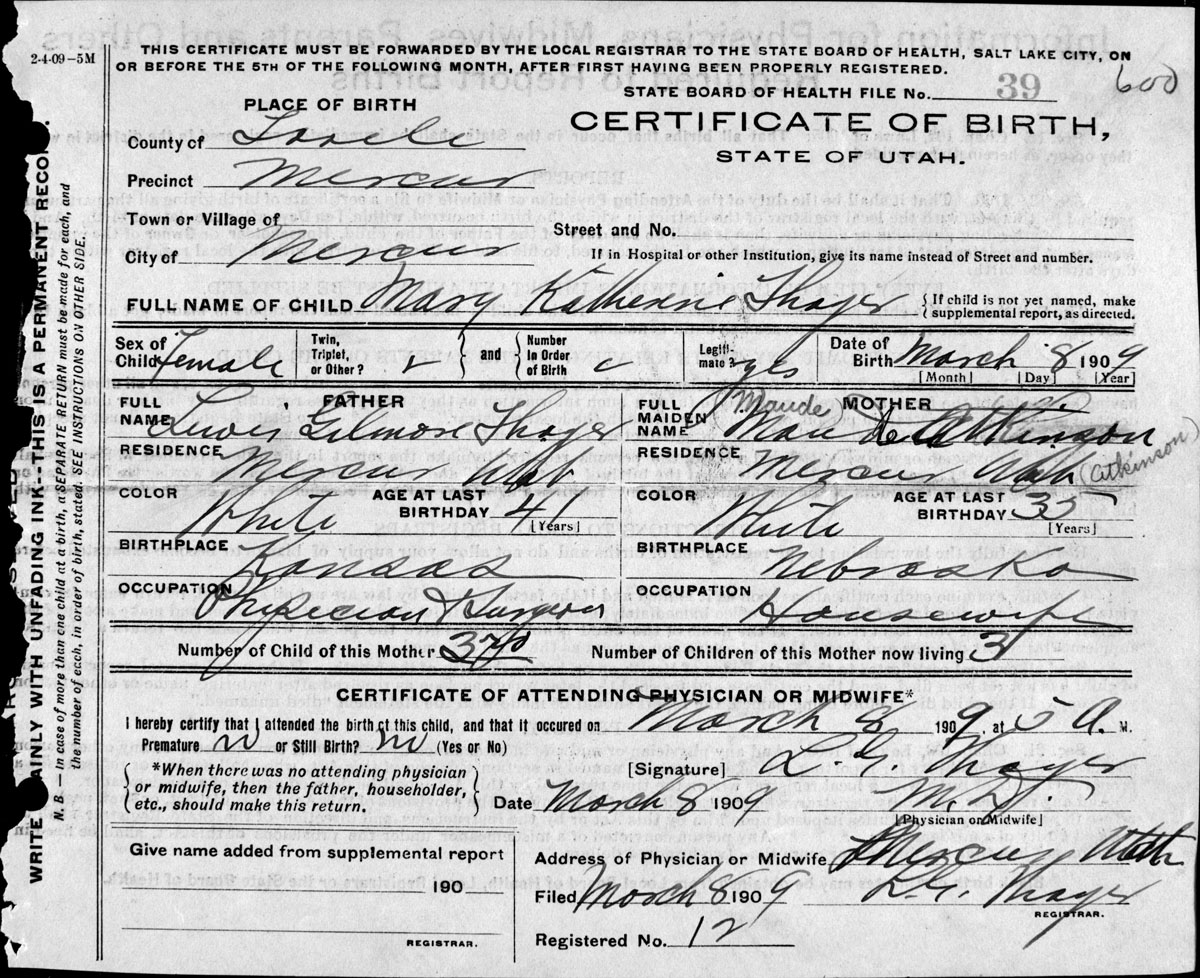 2-4-09-5M
THIS CERTIFICATE MUST BE FORWARDED BY THE LOCAL REGISTRAR TO THE STATE BOARD OF HEALTH, SALT LAKE CITY, ON
OR BEFORE THE 5TH OF THE FOLLOWING MONTH, AFTER FIRST HAVING BEEN PROPERLY REGISTERED.
600
STATE BOARD OF HEALTH FILE No. 39
PLACE OF BIRTH
CERTIFICATE OF BIRTH,
STATE OF UTAH.
County of Tooele
Precinct Mercur
Town or Village of
Street and No.
City of Mercur
If in Hospital or other Institution, give its name instead of Street and number.
FULL NAME OF CHILD Mary Katherine Thayer { If child is not yet named, make supplemental report, as directed.
Sex of Child Female Twin, Triplet, or Other? and Number in Order of Birth Legitimate? yes Date of Birth March 8 1909
[Month] [Day] [Year]
FATHER
FULL NAME Lewis Gilmore Thayer
RESIDENCE Mercur Utah
COLOR White AGE AT LAST BIRTHDAY 41 [Years]
BIRTHPLACE Kansas
OCCUPATION Physician & Surgeon
MOTHER
FULL MAIDEN NAME (Maude) Maude Atkinson
(Atkinson)
RESIDENCE Mercur Utah
COLOR White AGE AT LAST BIRTHDAY 35 [Years]
BIRTHPLACE Nebraska
OCCUPATION Housewife
Number of Child of this Mother 3rd Number of Children of this Mother now living 3
CERTIFICATE OF ATTENDING PHYSICIAN OR MIDWIFE*
I hereby certify that I attended the birth of this child, and that it occured on March 8 1909, at 5 A. M.
Premature no or Still Birth? no (Yes or No)
[Signature] L. G. Thayer
{ *When there was no attending physician
or midwife, then the father, householder,
etc., should make this return. }
Date March 8 1909 M.D.
[Physician or Midwife]
Give name added from supplemental report
190
REGISTRAR.
Address of Physician or Midwife Mercur Utah
Filed March 8 1909 L. G. Thayer
REGISTRAR.
Registered No. 12
WRITE PLAINLY WITH UNFADING INK--THIS IS A PERMANENT RECORD.
N. B.—In case of more than one child at a birth, a SEPARATE RETURN must be made for each, and
the number of each, in order of birth, stated. SEE INSTRUCTIONS ON OTHER SIDE.